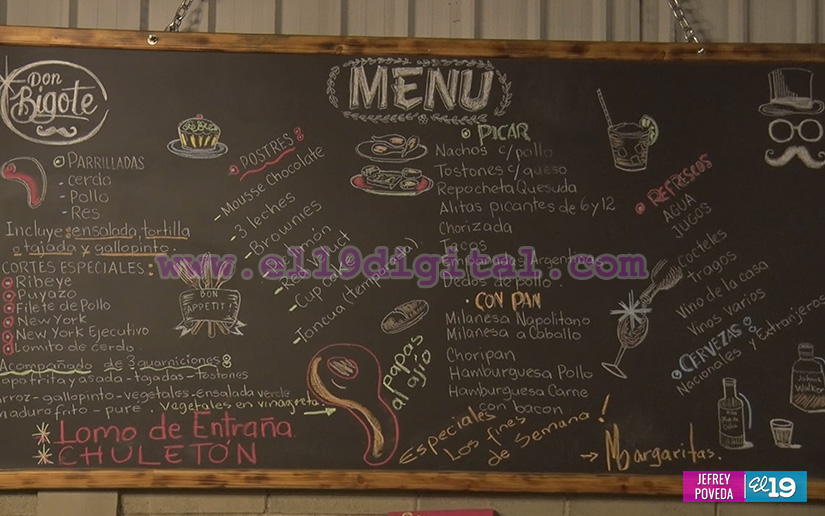 Don
Bigote
MENU
PARRILLADAS
- cerdo
- Pollo
- Res
Incluye: ensalada, tortilla
o tajada y gallopinto.
CORTES ESPECIALES:
Ribeye
Puyazo
Filete de Pollo
New York
New York Ejecutivo
Lomito de cerdo
Acompañado de 3 guarniciones:
Papa frita y asada - tajadas - tostones
arroz - gallopinto - vegetales - ensalada verde
maduro frito - pure. vegetales en vinagreta
* Lomo de Entraña
* CHULETÓN
POSTRES:
- Mousse Chocolate
- 3 leches
- Brownies
- Cup cake
(temporada).
BON
APPETIT!
Papas
al ajio
PICAR
Nachos c/pollo
Tostones c/queso
Repocheta Quesuda
Alitas picantes de 6 y 12
Chorizada
Tacos
Empanadas Argentinas
Dedos de pollo.
CON PAN
Milanesa Napolitano
Milanesa a Caballo
Choripan
Hamburguesa Pollo
Hamburguesa Carne
con bacon
Especiales
Los fines
de Semana!
→ Margaritas.
REFRESCOS
AGUA
JUGOS
Cocteles
Tragos
Vino de la casa
Vinos varios
CERVEZAS:
Nacionales y Extranjeros
www.el19digital.com
JEFREY
POVEDA
El 19